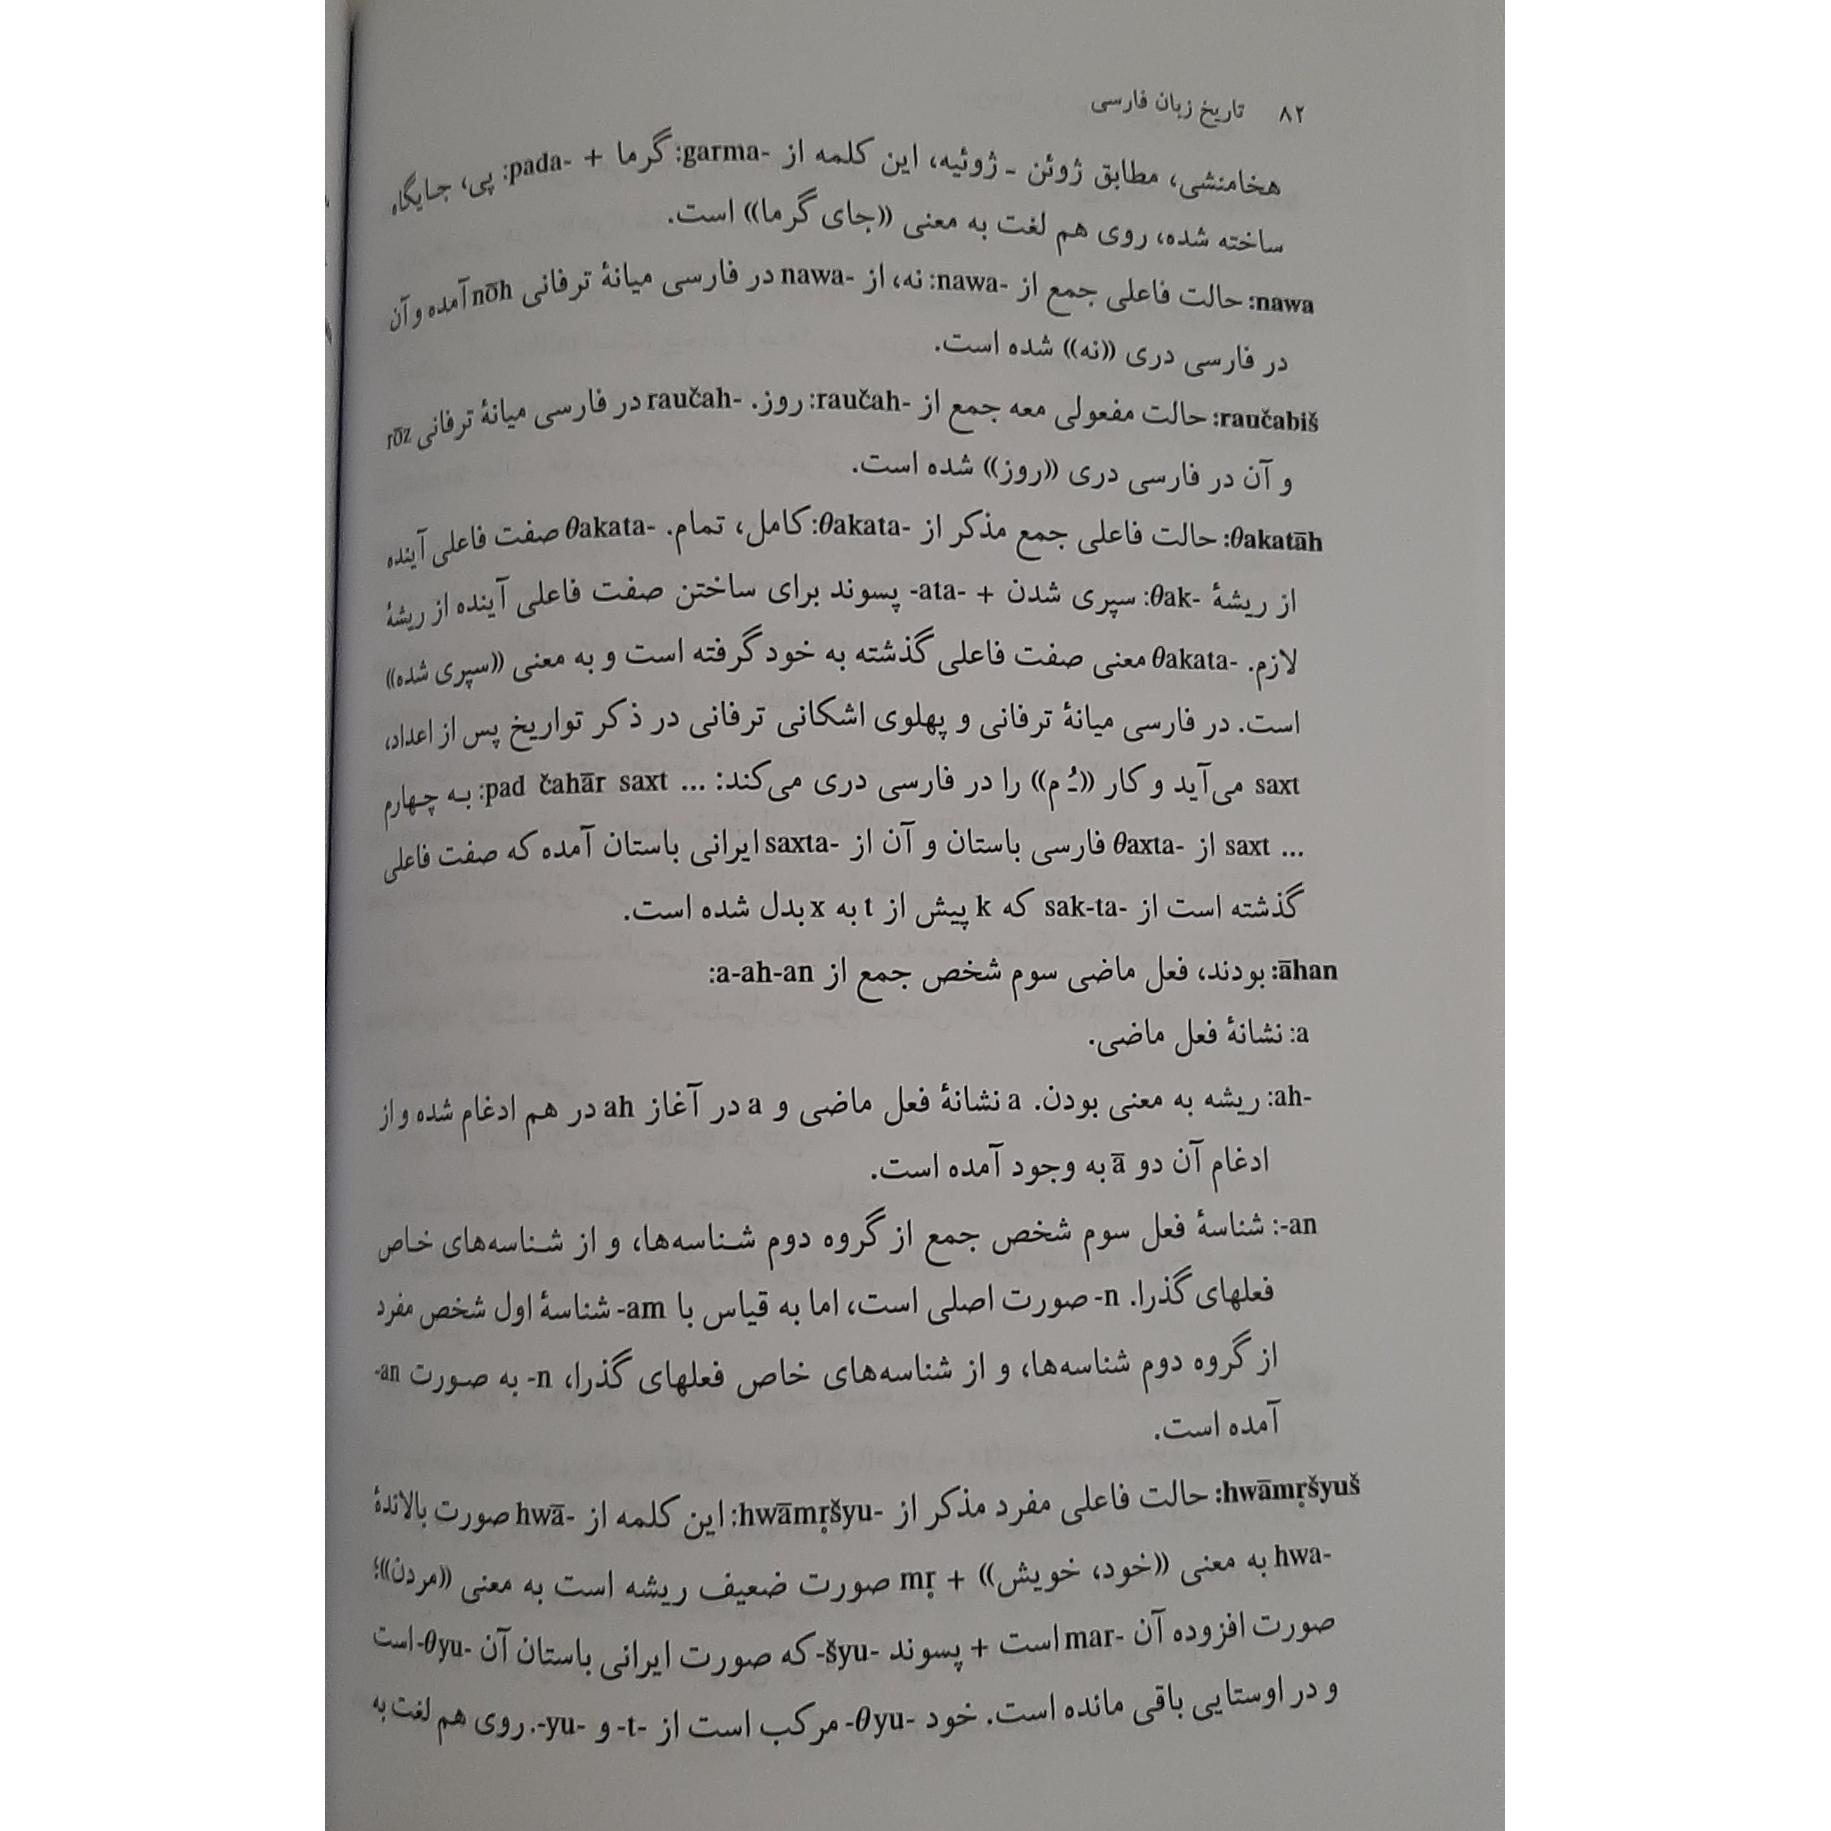 ۸۲ تاریخ زبان فارسی
هخامنشی، مطابق ژوئن ـ ژوئیه، این کلمه از garma-: گرما + pada-: پی، جایگاه
ساخته شده، روی هم لغت به معنی ((جای گرما)) است.
nawa: حالت فاعلی جمع از nawa-: نه، از nawa- در فارسی میانهٔ ترفانی nōh آمده و آن
در فارسی دری ((نه)) شده است.
raučabiš: حالت مفعولی معه جمع از raučah-: روز. raučah- در فارسی میانهٔ ترفانی rōz
و آن در فارسی دری ((روز)) شده است.
θakatāh: حالت فاعلی جمع مذکر از θakata-: کامل، تمام. θakata- صفت فاعلی آینده
از ریشهٔ θak-: سپری شدن + -ata- پسوند برای ساختن صفت فاعلی آینده از ریشهٔ
لازم. θakata- معنی صفت فاعلی گذشته به خود گرفته است و به معنی ((سپری شده))
است. در فارسی میانهٔ ترفانی و پهلوی اشکانی ترفانی در ذکر تواریخ پس از اعداد،
saxt می‌آید و کار ((ـُ م)) را در فارسی دری می‌کند: ... pad čahār saxt: به چهارم
... saxt از θaxta- فارسی باستان و آن از saxta- ایرانی باستان آمده که صفت فاعلی
گذشته است از sak-ta- که k پیش از t به x بدل شده است.
āhan: بودند، فعل ماضی سوم شخص جمع از a-ah-an:
a: نشانهٔ فعل ماضی.
ah-: ریشه به معنی بودن. a نشانهٔ فعل ماضی و a در آغاز ah در هم ادغام شده و از
ادغام آن دو ā به وجود آمده است.
-an: شناسهٔ فعل سوم شخص جمع از گروه دوم شناسه‌ها، و از شناسه‌های خاص
فعلهای گذرا. -n صورت اصلی است، اما به قیاس با -am شناسهٔ اول شخص مفرد
از گروه دوم شناسه‌ها، و از شناسه‌های خاص فعلهای گذرا، -n به صورت -an
آمده است.
hwāmr̥šyuš: حالت فاعلی مفرد مذکر از hwāmr̥šyu-: این کلمه از hwā- صورت بالاندهٔ
hwa- به معنی ((خود، خویش)) + mr̥ صورت ضعیف ریشه است به معنی ((مردن))؛
صورت افزوده آن mar- است + پسوند -šyu- که صورت ایرانی باستان آن -θyu- است
و در اوستایی باقی مانده است. خود -θyu- مرکب است از -t- و -yu-. روی هم لغت به